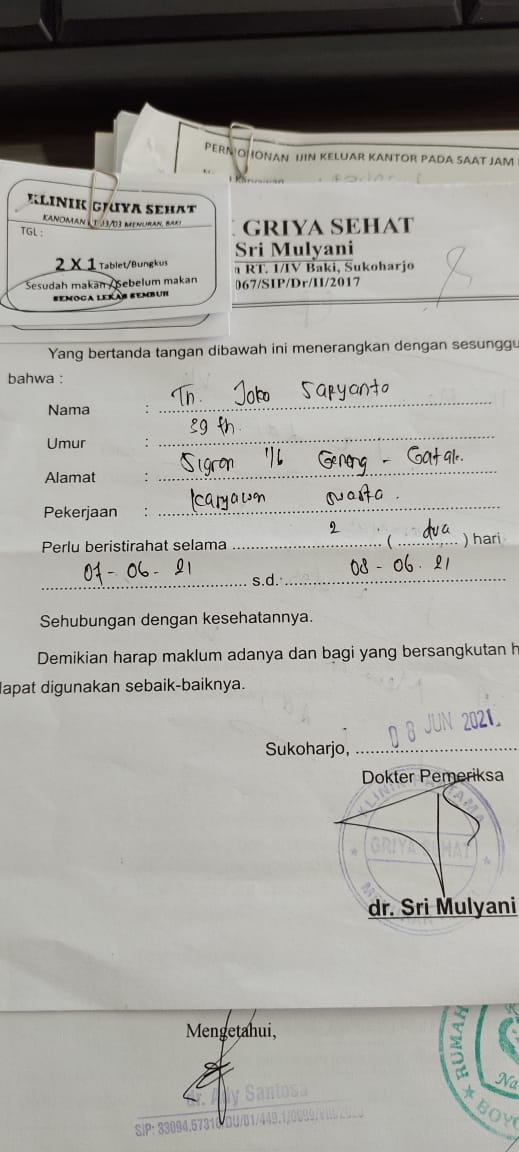 PERMOHONAN IJIN KELUAR KANTOR PADA SAAT JAM
KLINIK GRIYA SEHAT
KANOMAN RT 03/03 MENURAN, BAKI
TGL :
2 X 1 Tablet/Bungkus
Sesudah makan / Sebelum makan
SEMOGA LEKAS SEMBUH
GRIYA SEHAT
Sri Mulyani
RT. 1/IV Baki, Sukoharjo
067/SIP/Dr/II/2017
Yang bertanda tangan dibawah ini menerangkan dengan sesunggu
bahwa :
Nama : Tn. Joko Saryanto
Umur : 39 th.
Alamat : Sigron 1/6 Geneng - Gatak.
Pekerjaan : Karyawan swasta.
Perlu beristirahat selama 2 ( dua ) hari
07-06-21 s.d. 08-06.21
Sehubungan dengan kesehatannya.
Demikian harap maklum adanya dan bagi yang bersangkutan h
dapat digunakan sebaik-baiknya.
Sukoharjo, 08 JUN 2021
Dokter Pemeriksa
KLINIK PRATAMA
GRIYA SEHAT
dr. Sri Mulyani
Mengetahui,
RUMAH
Na
BOYO
Santosa
SIP: 33094.